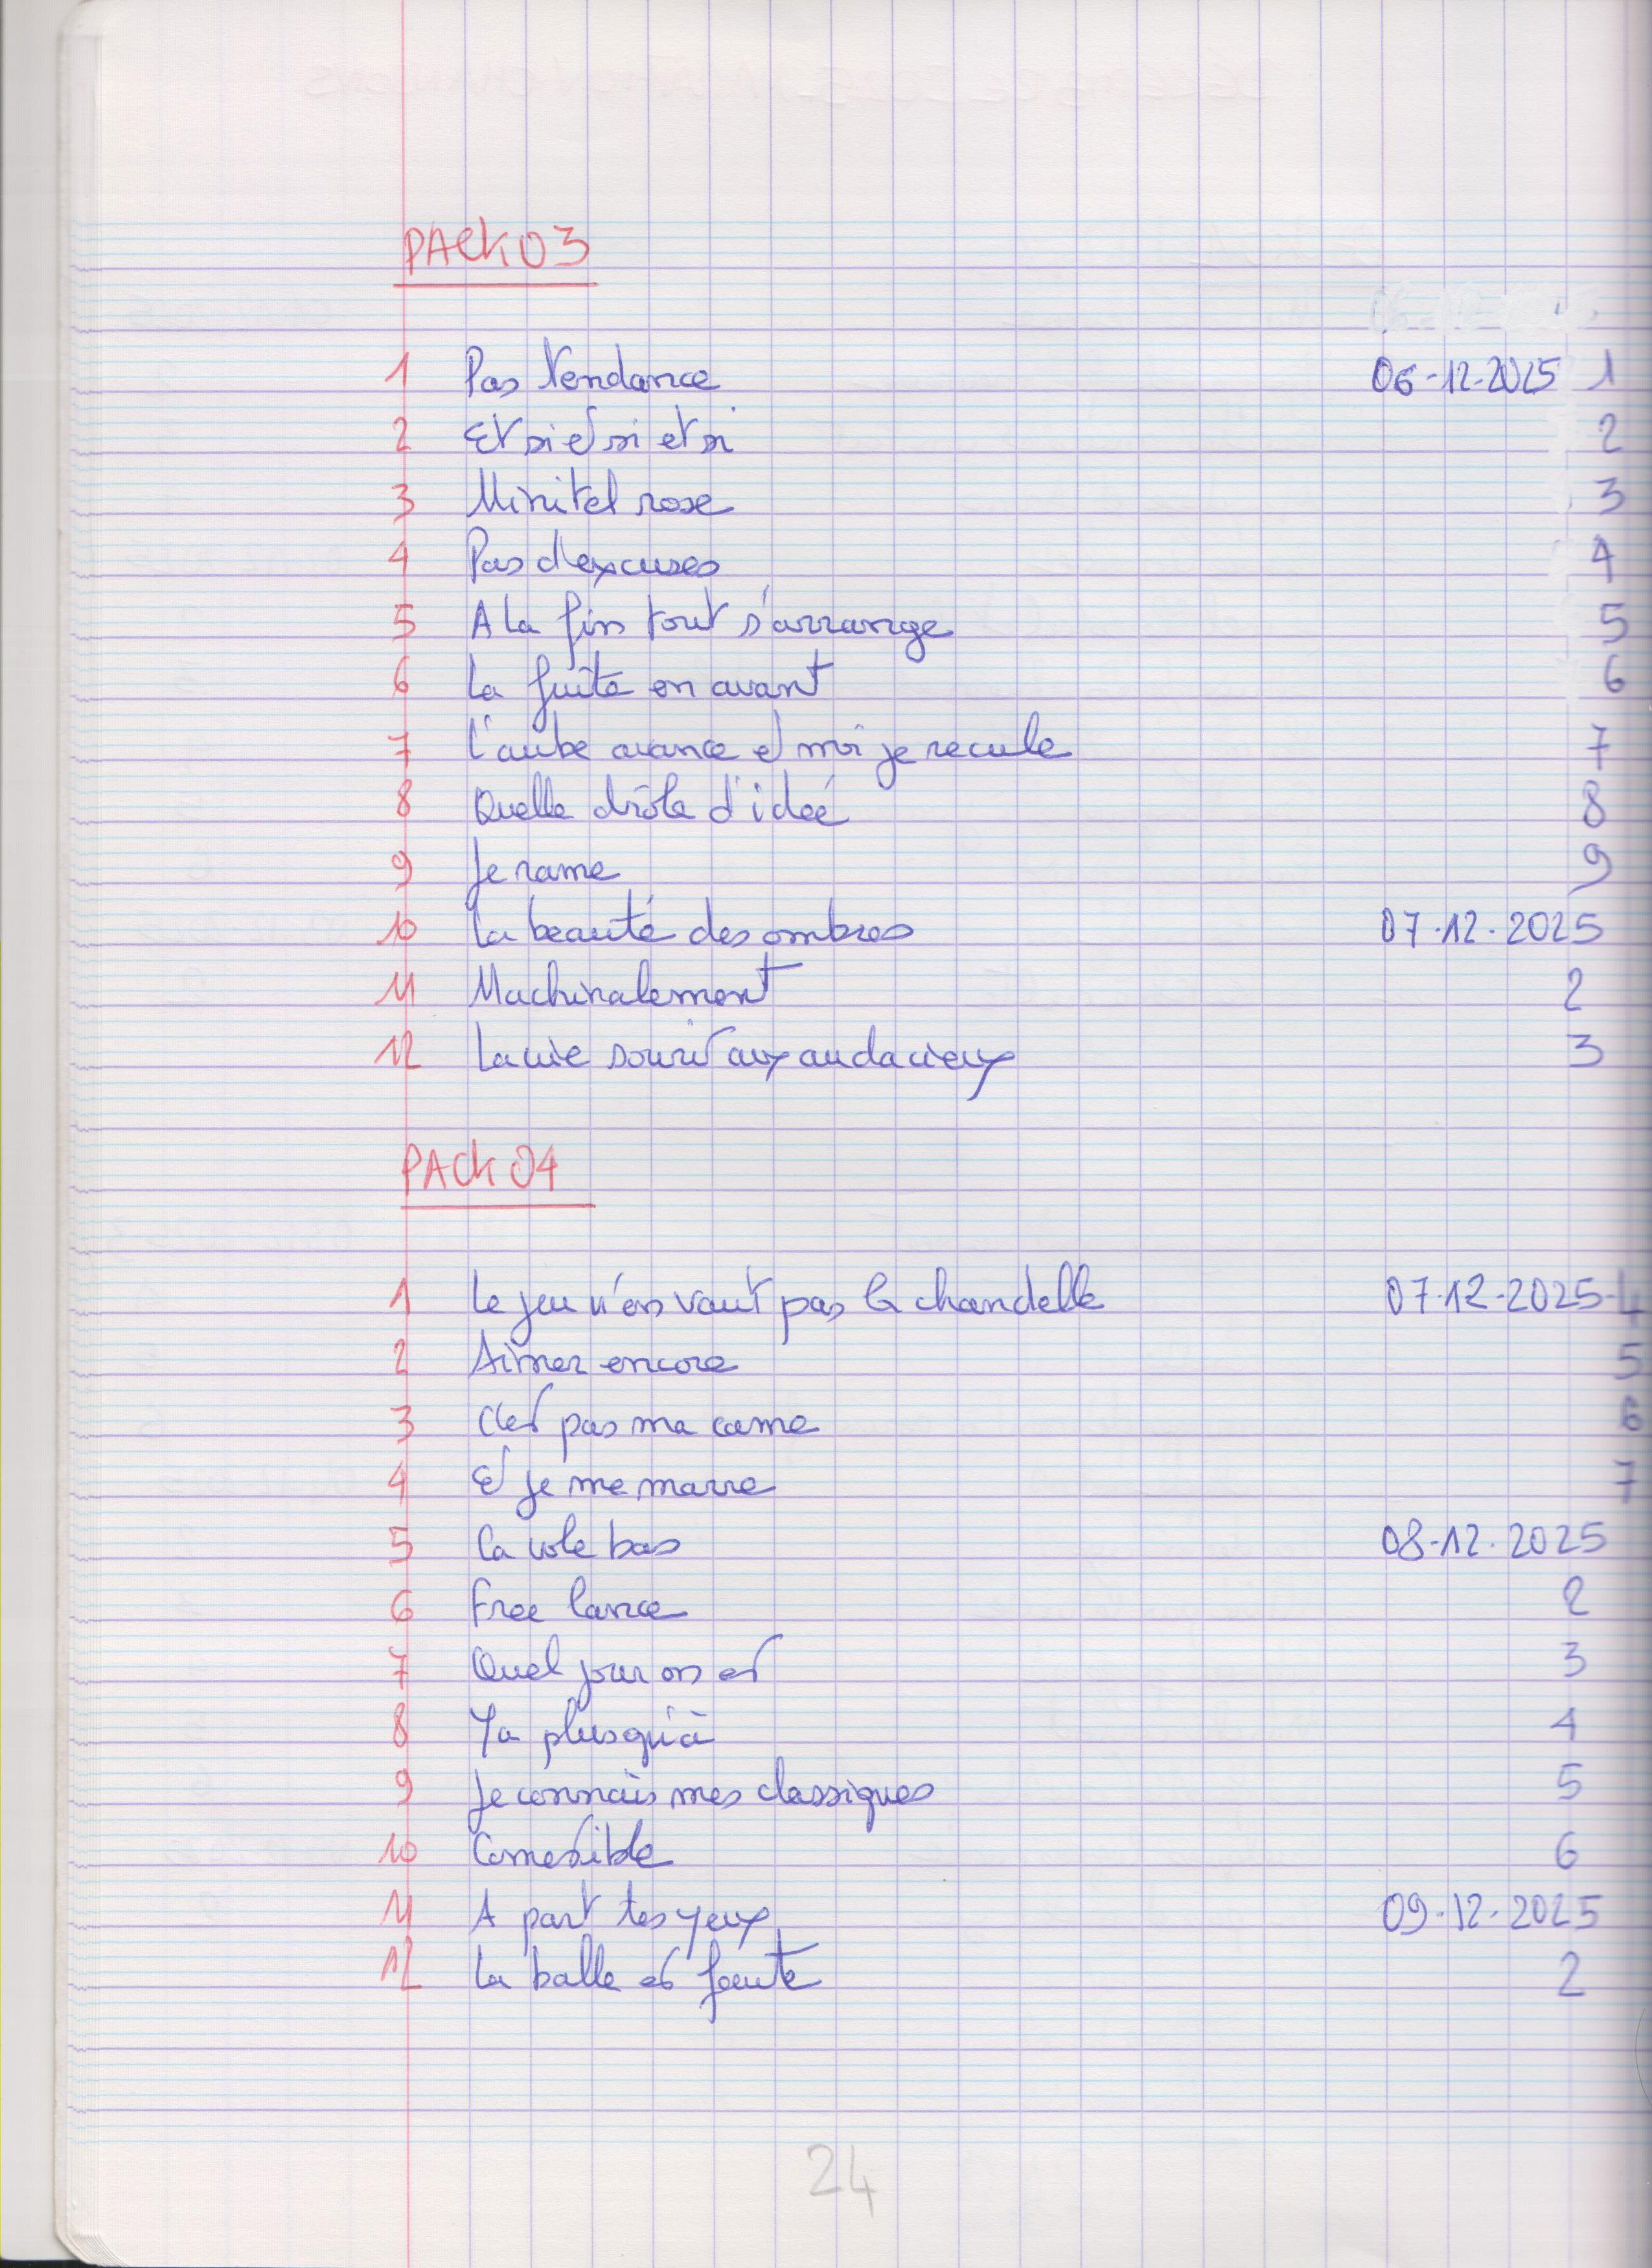 PACK 03
1 Pas tendance 06-12-2025 1
2 Et si et si et si 2
3 Minitel rose 3
4 Pas d'excuses 4
5 A la fin tout s'arrange 5
6 La fuite en avant 6
7 L'aube avance et moi je recule 7
8 Quelle drôle d'idée 8
9 Je rame 9
10 La beauté des ombres 07-12-2025
11 Machinalement 2
12 La vie sourit aux audacieux 3
PACK 04
1 Le jeu n'en vaut pas la chandelle 07-12-2025-4
2 Aimer encore 5
3 C'est pas ma came 6
4 Et je me marre 7
5 Ca vole bas 08-12-2025
6 Free lance 2
7 Quel jour on est 3
8 Ya plus qu'à 4
9 Je connais mes classiques 5
10 Comestible 6
11 A part tes yeux 09-12-2025
12 La balle est faute 2
24